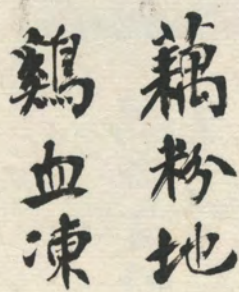 藕粉地
鷄血凍